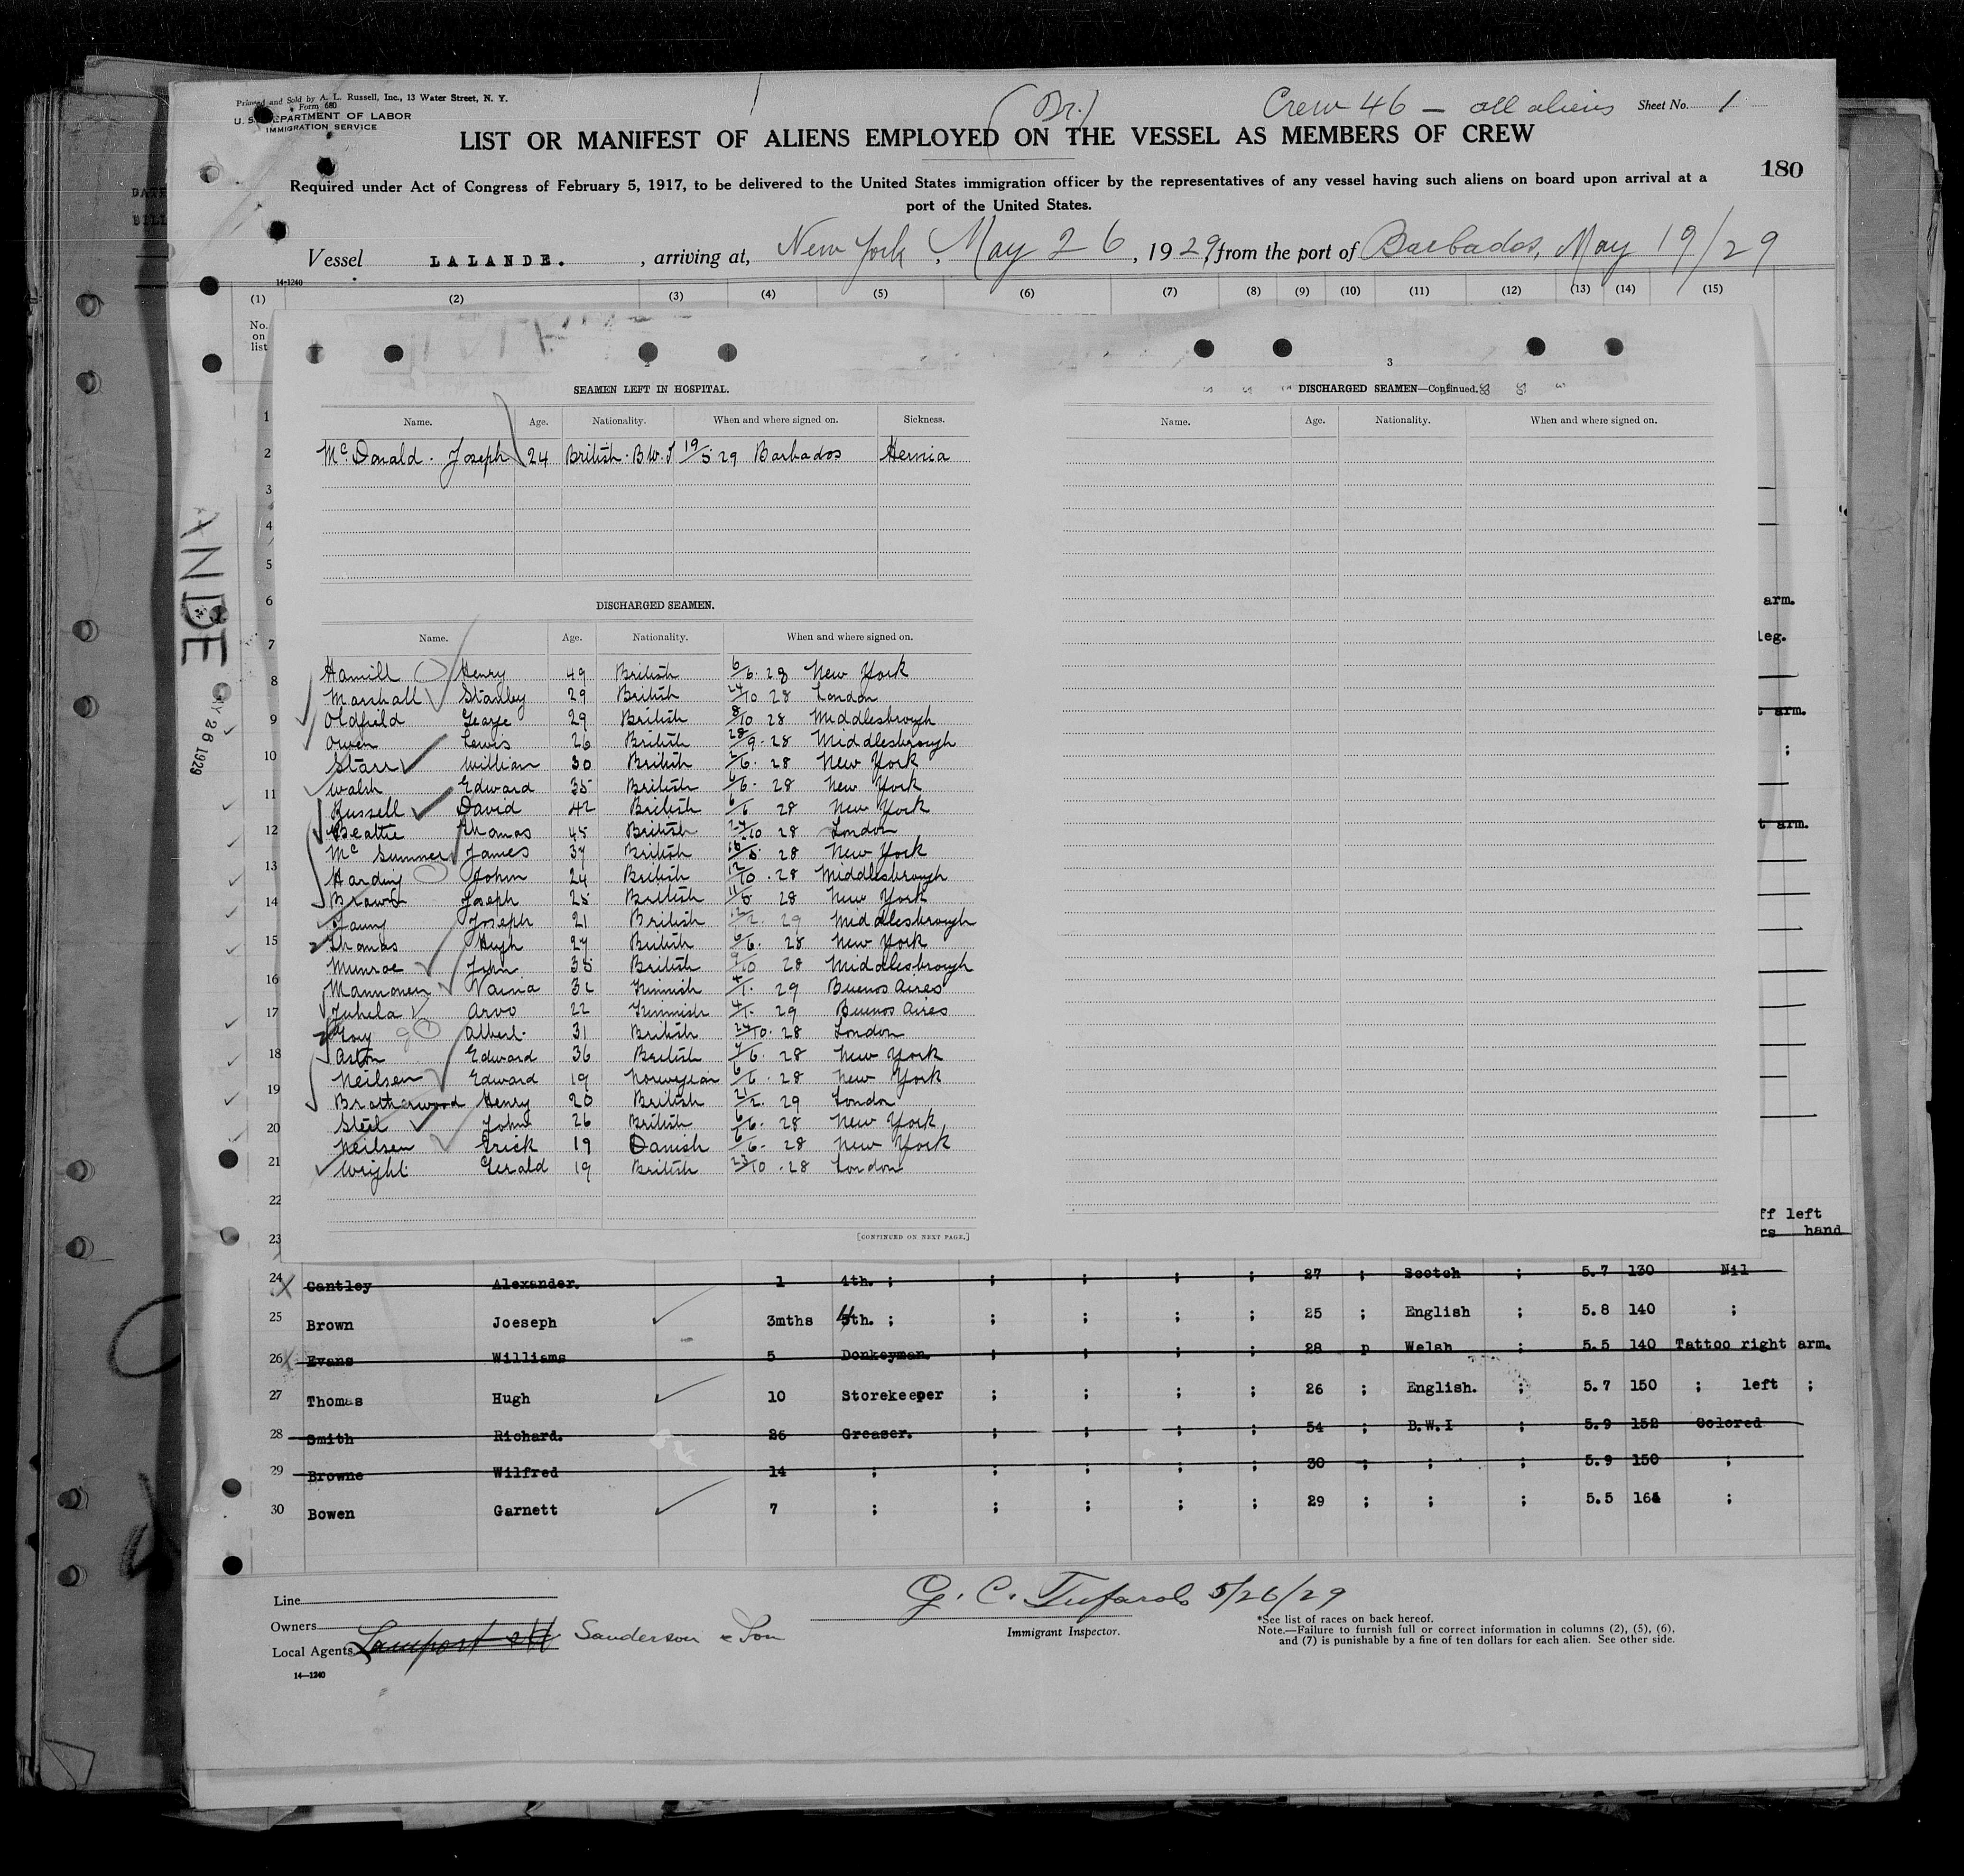 Printed and Sold by A. L. Russell, Inc., 13 Water Street, N. Y.
Form 680
U. S. DEPARTMENT OF LABOR
IMMIGRATION SERVICE
(Br.)
Crew 46 — all aliens Sheet No. 1
LIST OR MANIFEST OF ALIENS EMPLOYED ON THE VESSEL AS MEMBERS OF CREW
180
Required under Act of Congress of February 5, 1917, to be delivered to the United States immigration officer by the representatives of any vessel having such aliens on board upon arrival at a
port of the United States.
Vessel LALANDE. , arriving at, New York, May 26, 1929, from the port of Barbados, May 19/29
14-1240
(1) (2) (3) (4) (5) (6) (7) (8) (9) (10) (11) (12) (13) (14) (15)
No.
on
list
3
SEAMEN LEFT IN HOSPITAL. DISCHARGED SEAMEN—Continued.
Name. Age. Nationality. When and where signed on. Sickness. Name. Age. Nationality. When and where signed on.
Mc. Donald. Joseph 24 British. B.W.I 19/5 29 Barbados Hernia
DISCHARGED SEAMEN.
Name. Age. Nationality. When and where signed on.
Hamill Henry 49 British 6/6. 28 New York
Marshall Stanley 29 British 24/10 28 London
Oldfield George 29 British 8/10 28 Middlesbrough
Owen Lewis 26 British 28/9. 28 Middlesbrough
Starr William 30 British 2/6. 28 New York
Walsh Edward 35 British 6/6. 28 New York
Russell David 42 British 6/6 28 New York
Beattie Thomas 45 British 24/10 28 London
Mc Sumner James 37 British 28 New York
Harding John 24 British 12/10. 28 Middlesbrough
Brown Joseph 25 British 28 New York
Young Joseph 21 British 12/2. 29 Middlesbrough
Thomas Hugh 27 British 6/6. 28 New York
Munroe John 35 British 9/10 28 Middlesbrough
Mannonen Vaino 32 Finnish 4/1. 29 Buenos Aires
Juhela Arvo 22 Finnish 4/1. 29 Buenos Aires
Albert. 31 British 24/10. 28 London
Aston Edward 36 British 28 New York
Neilsen Edward 19 Norwegian 6/6. 28 New York
Brotherwood Henry 20 British 21/2. 29 London
Steel John 26 British 6/6. 28 New York
Neilsen Erick 19 Danish 6/6. 28 New York
Wright Gerald 19 British 23/10. 28 London
[CONTINUED ON NEXT PAGE.]
1
2
3
4
5
6
7
8
9
10
11
12
13
14
15
16
17
18
19
20
21
22
23
arm.
leg.
arm.
;
arm.
ff left
rs hand
ANDE
26 1929
24 Cantley Alexander. 1 4th. ; ; ; ; ; 27 ; Scotch ; 5.7 130 Nil
25 Brown Joeseph 3mths 4th. ; ; ; ; ; 25 ; English ; 5.8 140 ;
26 Evans Williams 5 Donkeyman. ; ; ; ; 28 p Welsh ; 5.5 140 Tattoo right arm.
27 Thomas Hugh 10 Storekeeper ; ; ; ; 26 ; English. ; 5.7 150 ; left ;
28 Smith Richard. 26 Greaser. ; ; ; ; 54 ; B.W.I ; 5.9 152 Colored
29 Browne Wilfred 14 ; ; ; ; ; 30 ; ; ; 5.9 150 ;
30 Bowen Garnett 7 ; ; ; ; ; 29 ; ; ; 5.5 164 ;
Line
Owners
Local Agents Lamport & H Sanderson & Son
14—1240
5/26/29
Immigrant Inspector.
*See list of races on back hereof.
Note.—Failure to furnish full or correct information in columns (2), (5), (6),
and (7) is punishable by a fine of ten dollars for each alien. See other side.